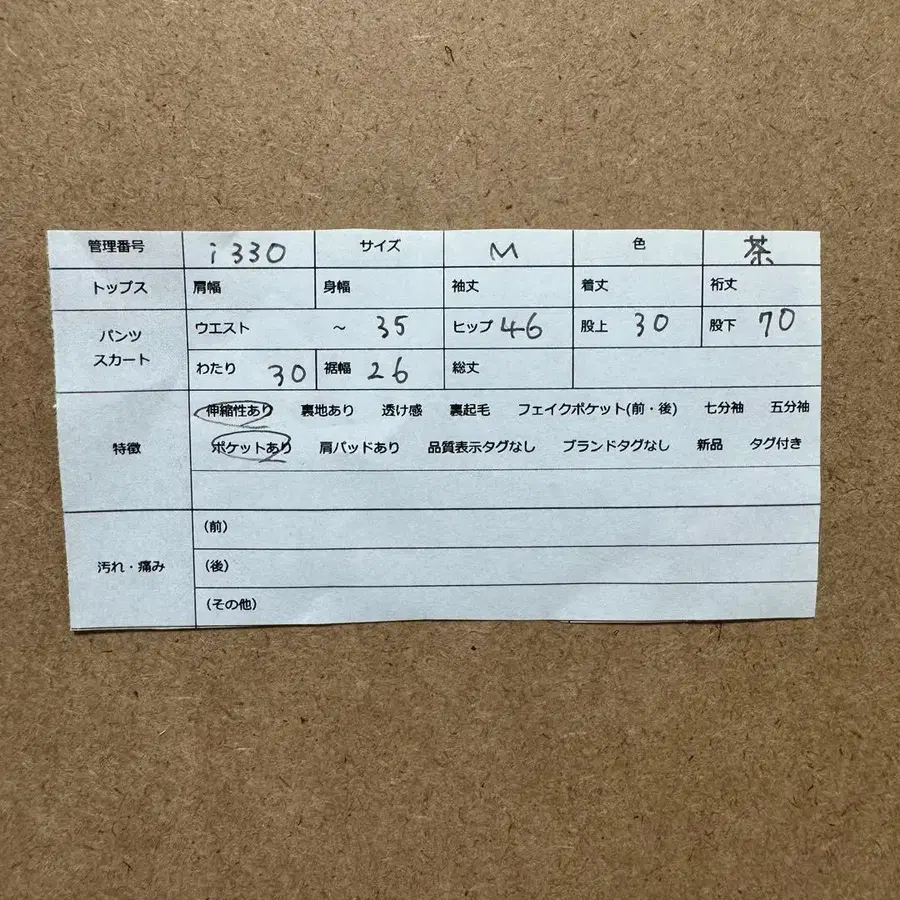 管理番号 i330 サイズ M 色 茶
トップス 肩幅 身幅 袖丈 着丈 裄丈
パンツ スカート
ウエスト ～ 35 ヒップ 46 股上 30 股下 70
わたり 30 裾幅 26 総丈
特徴
伸縮性あり 裏地あり 透け感 裏起毛 フェイクポケット(前・後) 七分袖 五分袖
ポケットあり 肩パッドあり 品質表示タグなし ブランドタグなし 新品 タグ付き
汚れ・痛み
(前)
(後)
(その他)